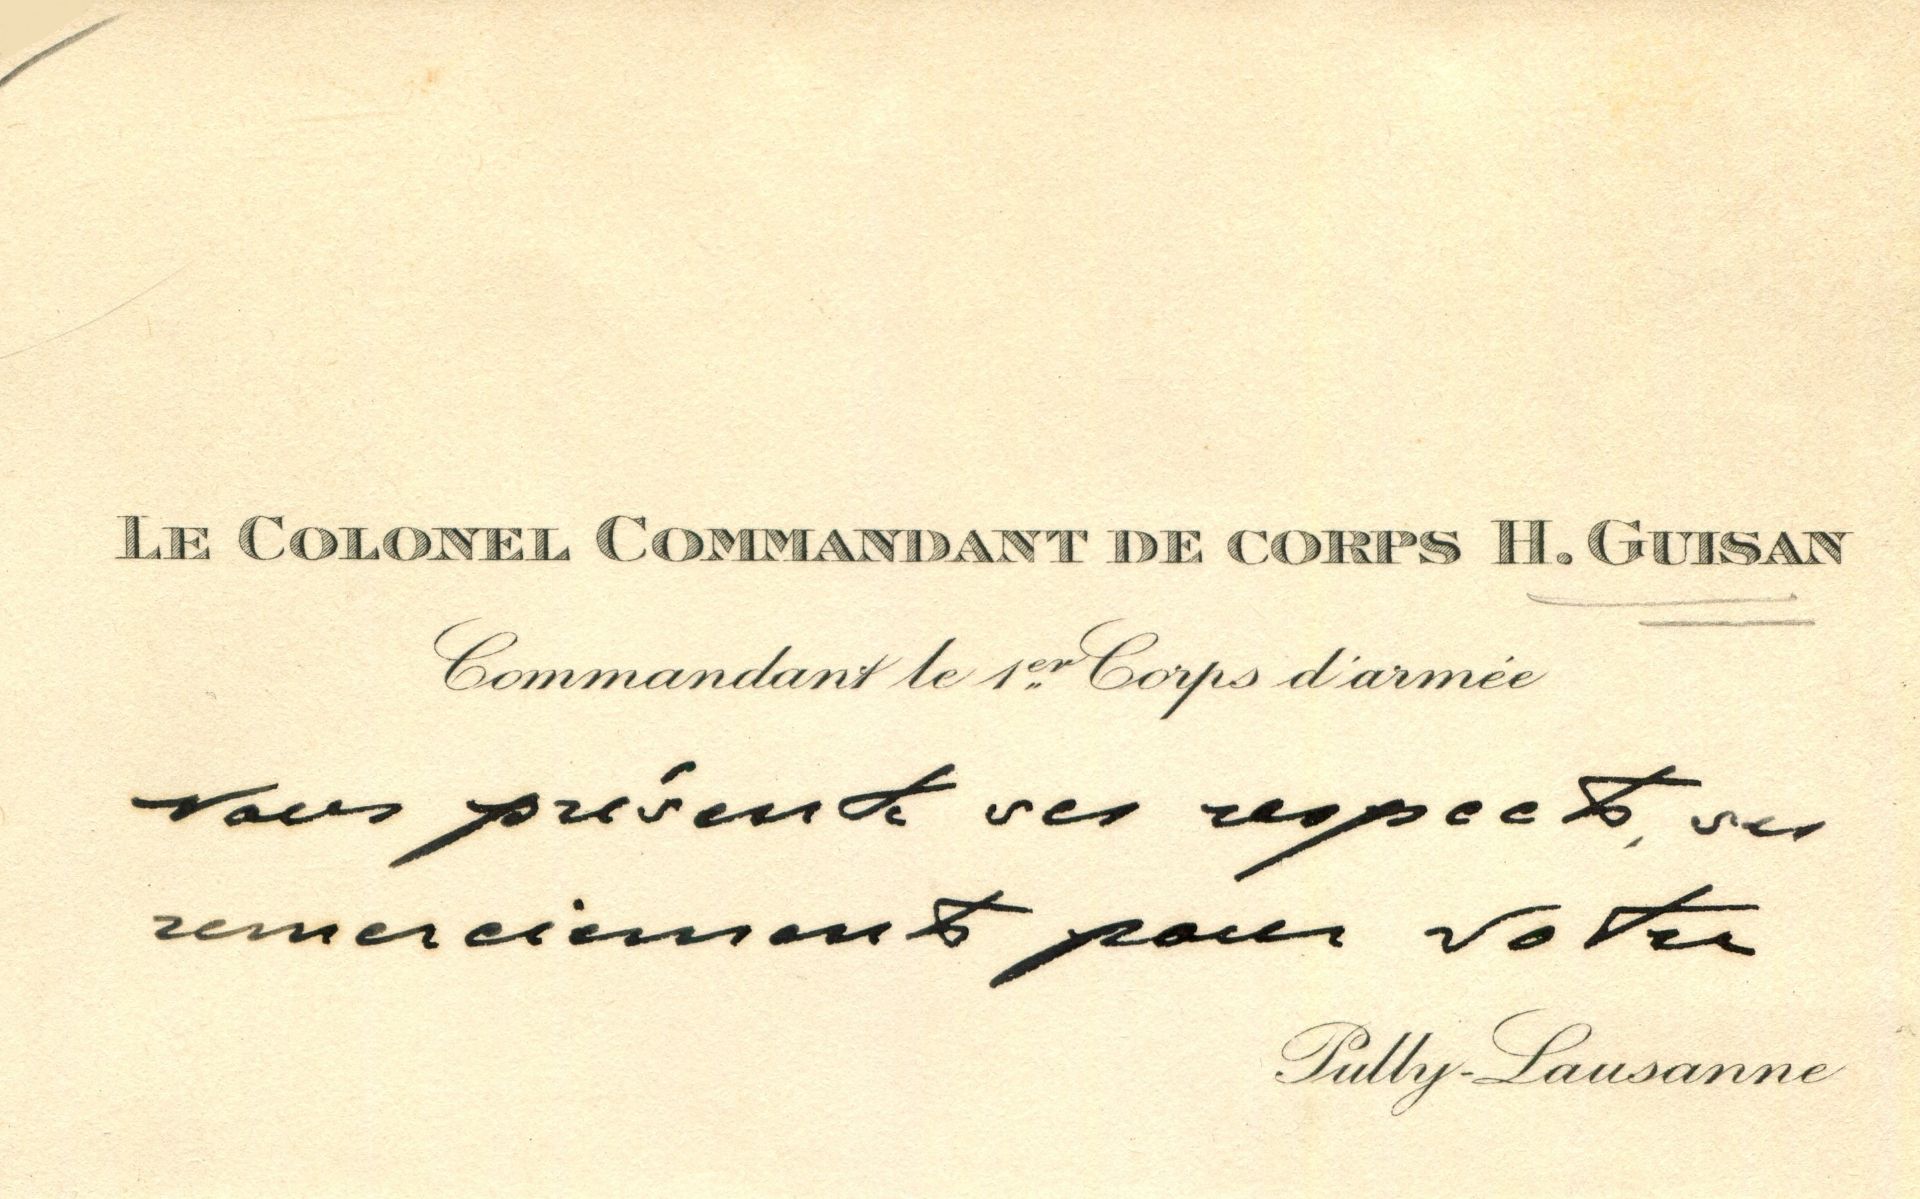 LE COLONEL COMMANDANT DE CORPS H. GUISAN
Commandant le 1er Corps d'armée
vous présente ses respects, ses
remerciements pour votre
Pully-Lausanne